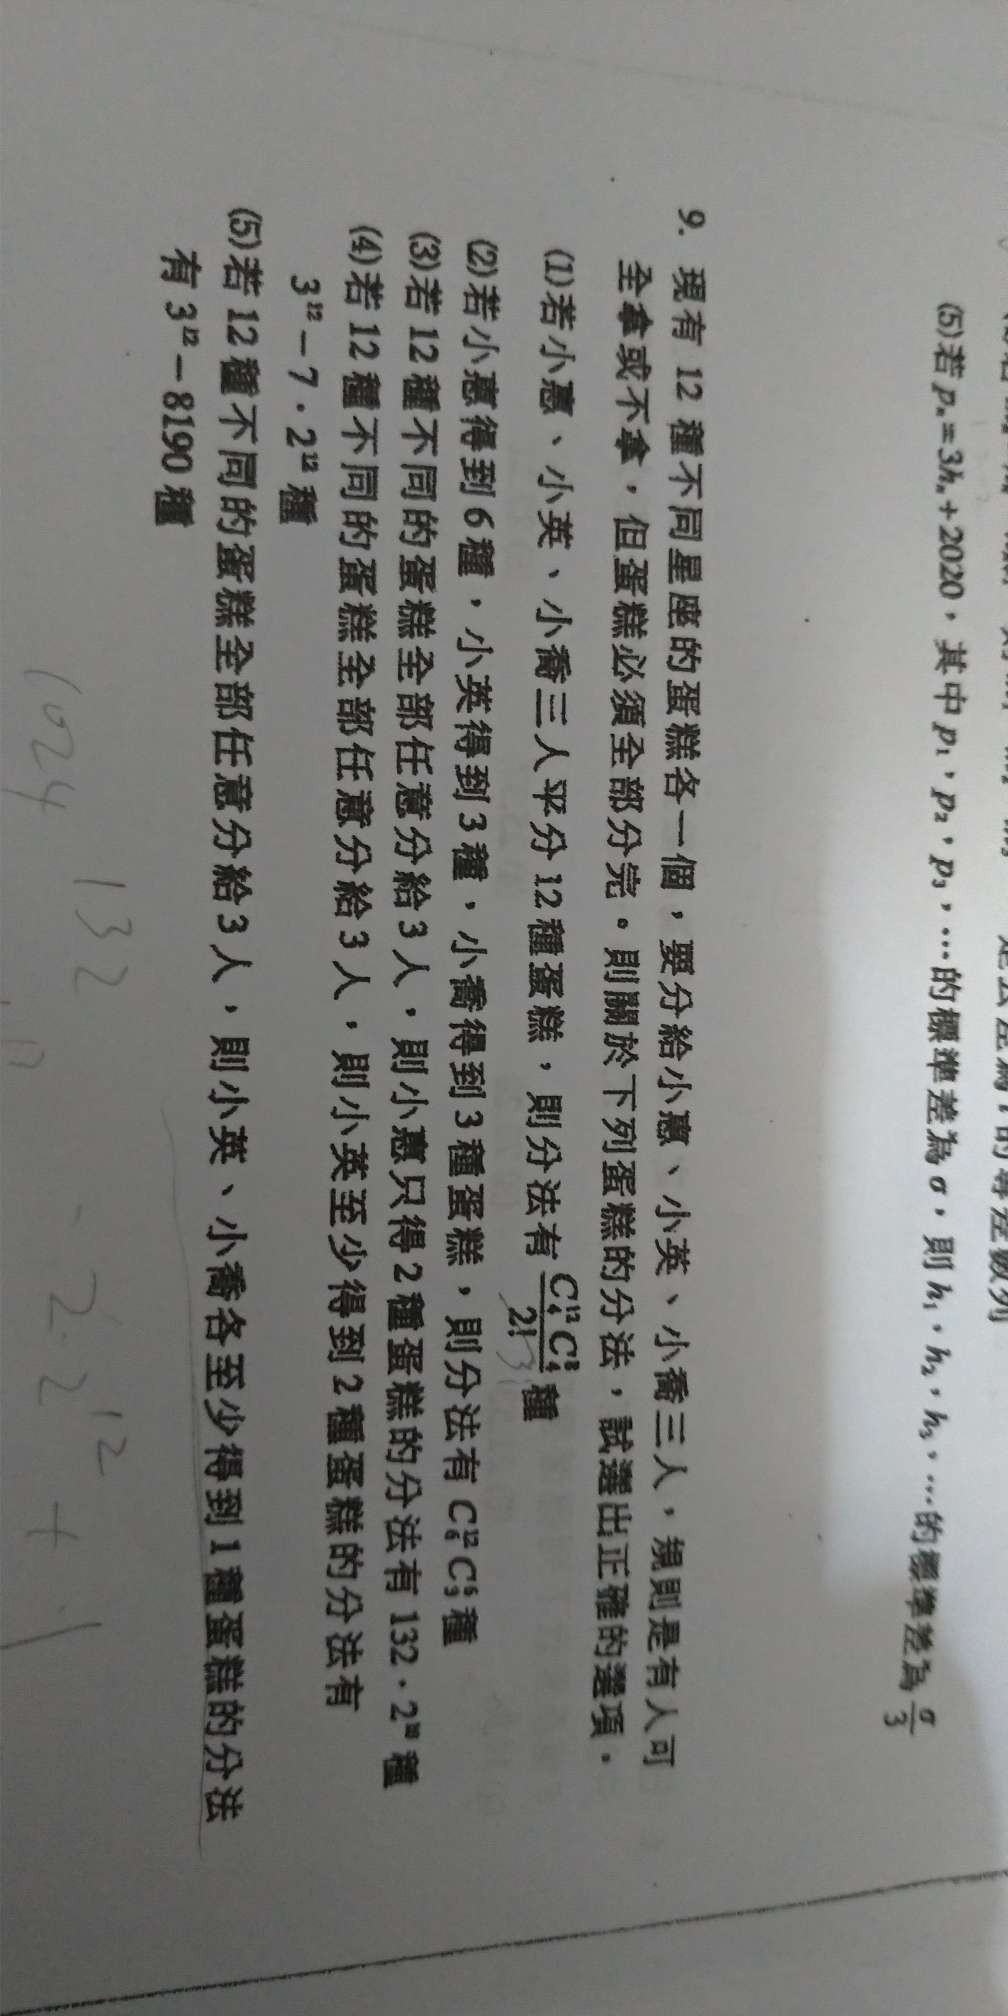 (5)若 pₙ=3hₙ+2020，其中 p₁，p₂，p₃，…的標準差為 σ，則 h₁，h₂，h₃，…的標準差為 σ/3
9. 現有 12 種不同星座的蛋糕各一個，要分給小惠、小英、小喬三人，規則是有人可
全拿或不拿，但蛋糕必須全部分完。則關於下列蛋糕的分法，試選出正確的選項。
(1)若小惠、小英、小喬三人平分 12 種蛋糕，則分法有 C₄¹²C₄⁸/2! 種
(2)若小惠得到 6 種，小英得到 3 種，小喬得到 3 種蛋糕，則分法有 C₆¹²C₃⁶ 種
(3)若 12 種不同的蛋糕全部任意分給 3 人，則小惠只得 2 種蛋糕的分法有 132．2¹⁰ 種
(4)若 12 種不同的蛋糕全部任意分給 3 人，則小英至少得到 2 種蛋糕的分法有
3¹²－7．2¹² 種
(5)若 12 種不同的蛋糕全部任意分給 3 人，則小英、小喬各至少得到 1 種蛋糕的分法
有 3¹²－8190 種
132 - 2·2¹² + 1
1024